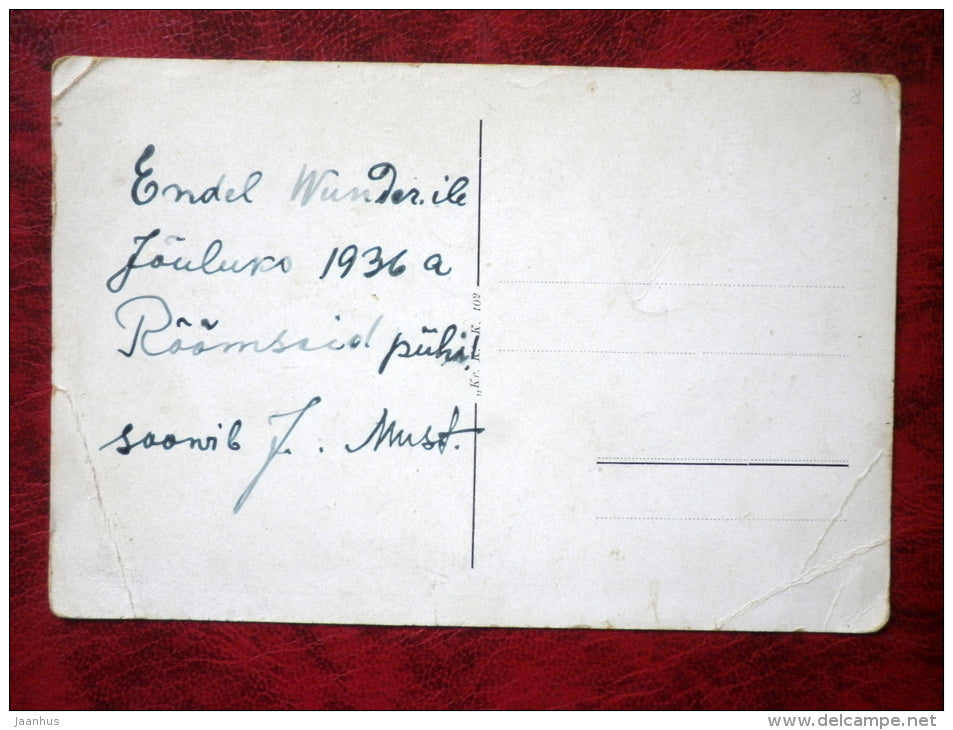 Endel Wunder.ile
Jõuluks 1936 a
Rõõmsaid pühi!
soowib J. Must.
"Kr. K. K. 102
jaanhus
www.delcampe.net